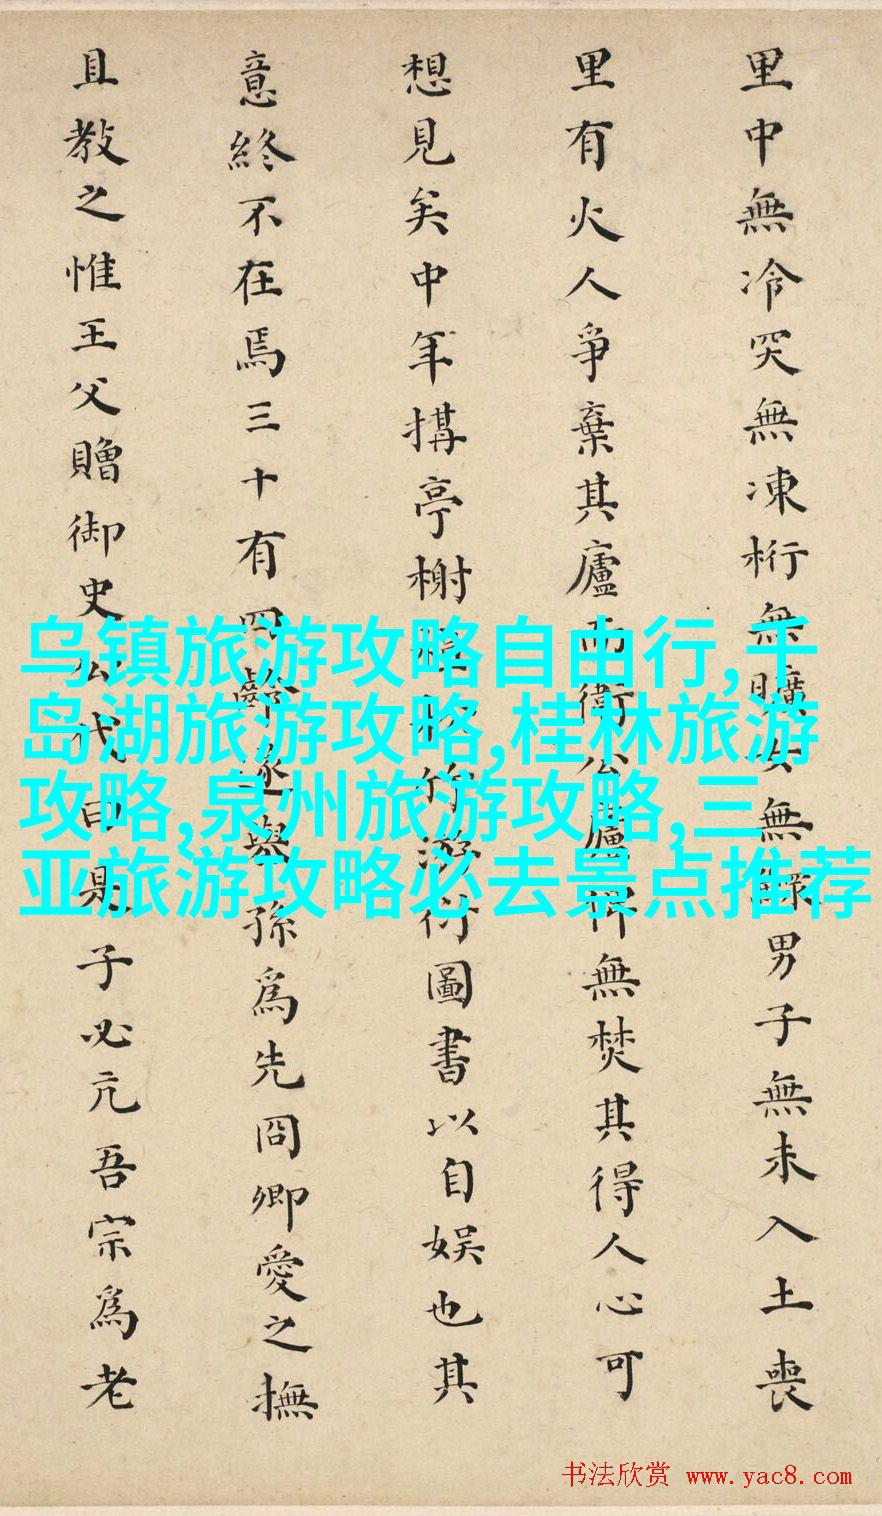 里中無冷突無凍桁無曠女無鰥男子無未入土喪
里有火人爭棄其廬而衛公廬俾無焚其得人心可
想見矣中年搆亭榭種秫竹游衍圖書以自娱也其
意終不在焉三十有四齡遂舉孫為先冏卿愛之撫
且教之惟王父贈御史公代曰是子必亢吾宗為老
乌镇旅游攻略自由行,千
岛湖旅游攻略,桂林旅游
攻略,泉州旅游攻略,三
亚旅游攻略必去景点推荐
书法欣赏 www.yac8.com